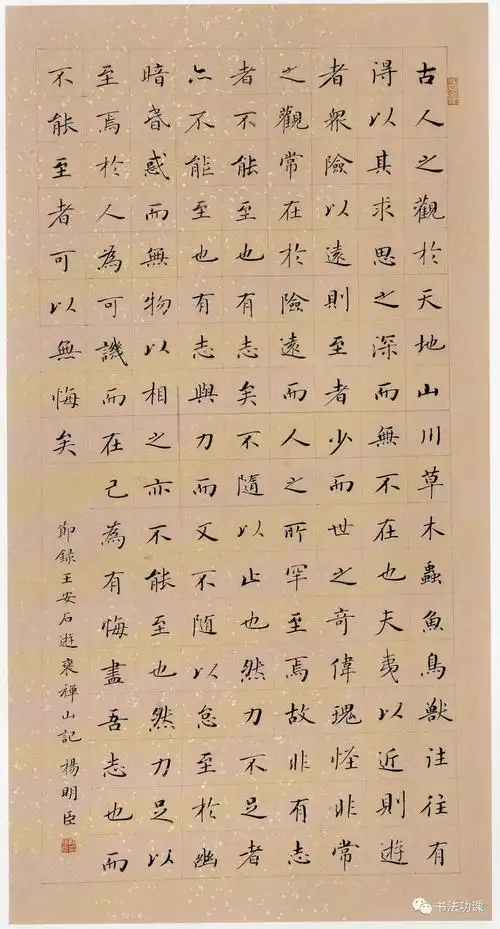 古人之觀於天地山川草木蟲魚鳥獸往往有
得以其求思之深而無不在也夫夷以近則遊
者眾險以遠則至者少而世之奇偉瑰怪非常
之觀常在於險遠而人之所罕至焉故非有志
者不能至也有志矣不隨以止也然力不足者
亦不能至也有志與力而又不隨以怠至於幽
暗昏惑而無物以相之亦不能至也然力足以
至焉於人為可譏而在己為有悔盡吾志也而
不能至者可以無悔矣
節錄王安石遊褒禪山記 楊明臣
书法功课